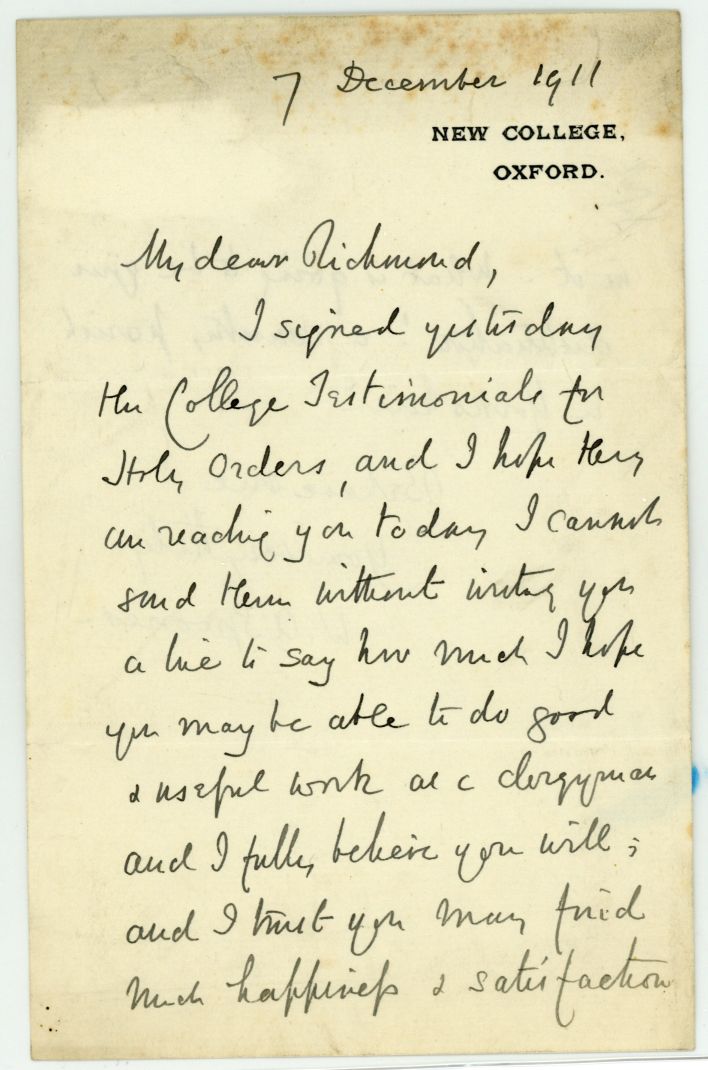 7 December 1911
NEW COLLEGE,
OXFORD.
My dear Richmond,
I signed yesterday
the College Testimonials for
Holy Orders, and I hope they
are reaching you today I cannot
send them without writing you
a line to say how much I hope
you may be able to do good
& useful work as a clergyman
and I fully believe you will;
and I trust you may find
much happiness & satisfaction